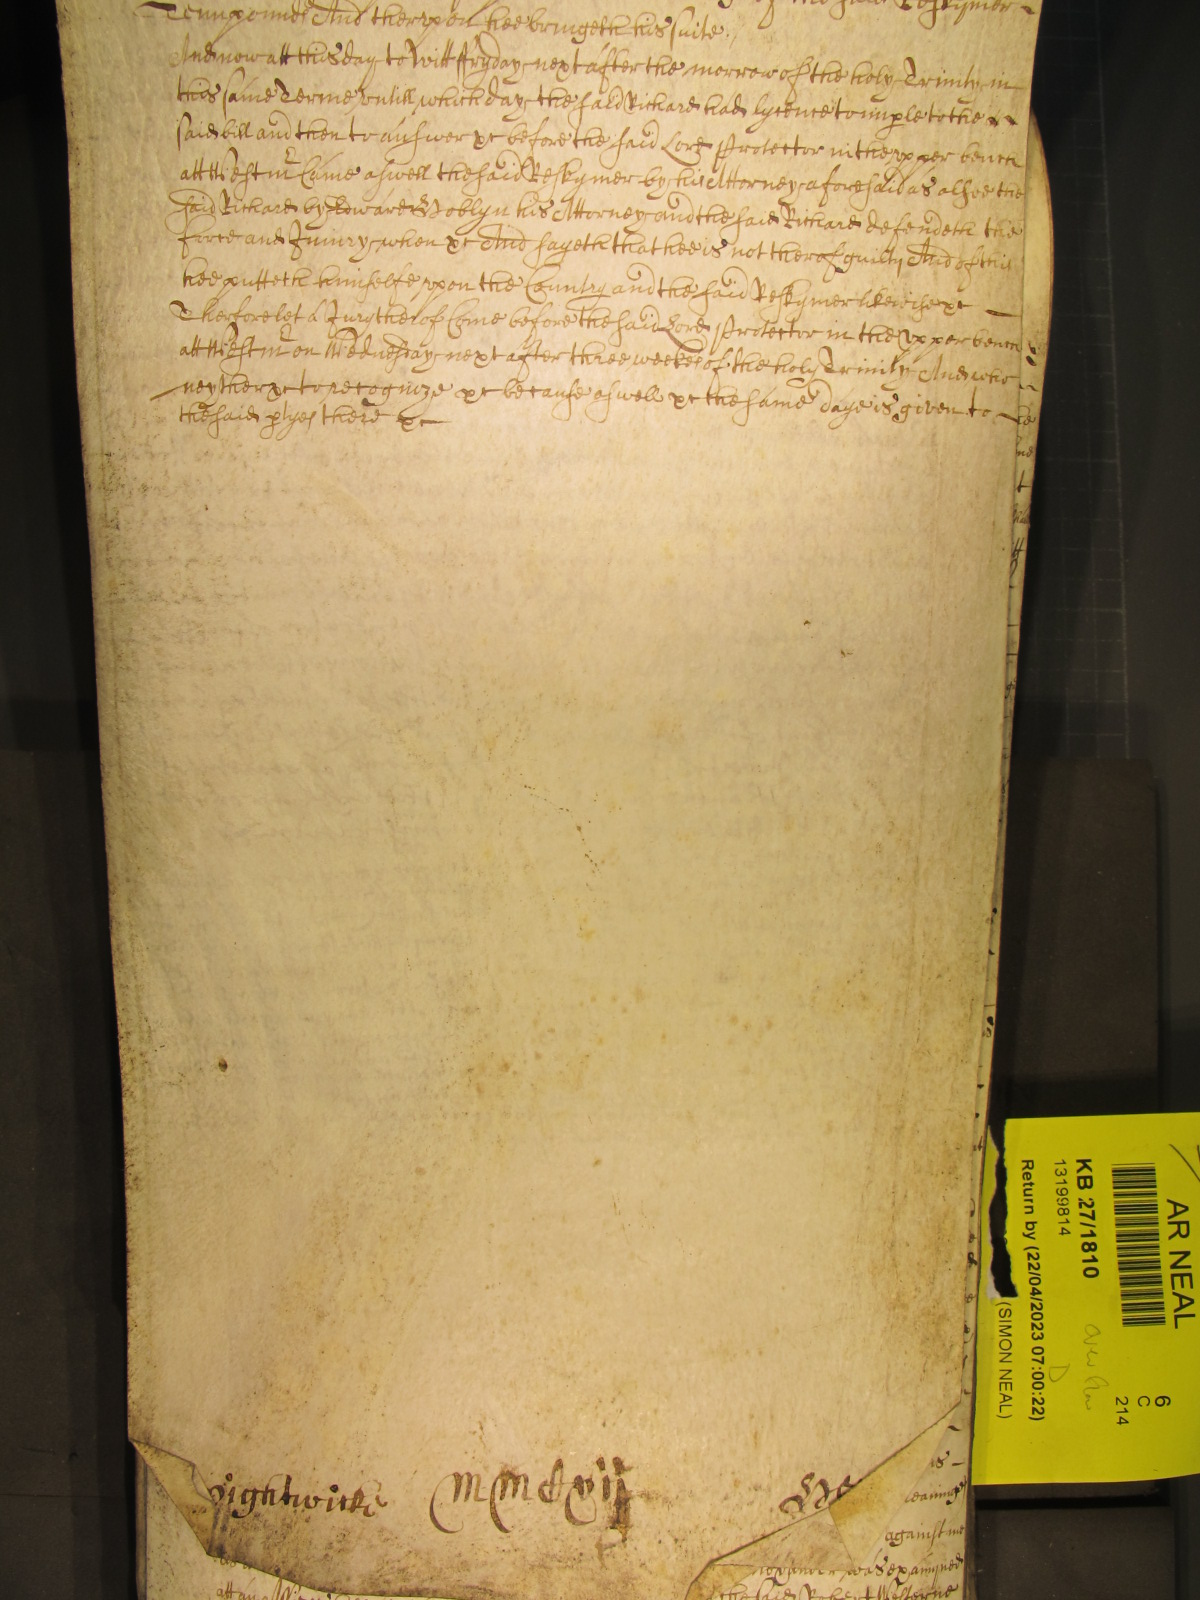 of the said Reskymer
Tenn pounds And therupon hee bringeth his suite.
And now att this day to Witt ffryday next after the morrow of the holy Trinity in
this same Terme untill which day the said Richard had lycence to imple to the
said bill and then to answer &c before the said Lord Protector in the upper bench
att Westmr Came aswell the said Reskymer by his Attorney aforesaid as alsoe the
said Richard by Edward Noblyn his Attorney and the said Richard defendeth the
force and Iniury when &c And sayeth that hee is not therof guilty And of this
hee putteth himselfe uppon the Country and the said Reskymer likewise &c
Therfore let a Jury therof Come before the said Lord Protector in the upper bench
att Westmr on Wednesday next after three weekes of the holy Trinity And who
neyther &c to recognize &c because aswell &c the same daye is given to
the said ptyes there &c
ightwicke MMCxvii
is
against me
was examyned
the said Robert
AR NEAL
6
C
214
KB 27/1810
13199814
Return by (22/04/2023 07:00:22)
(SIMON NEAL)